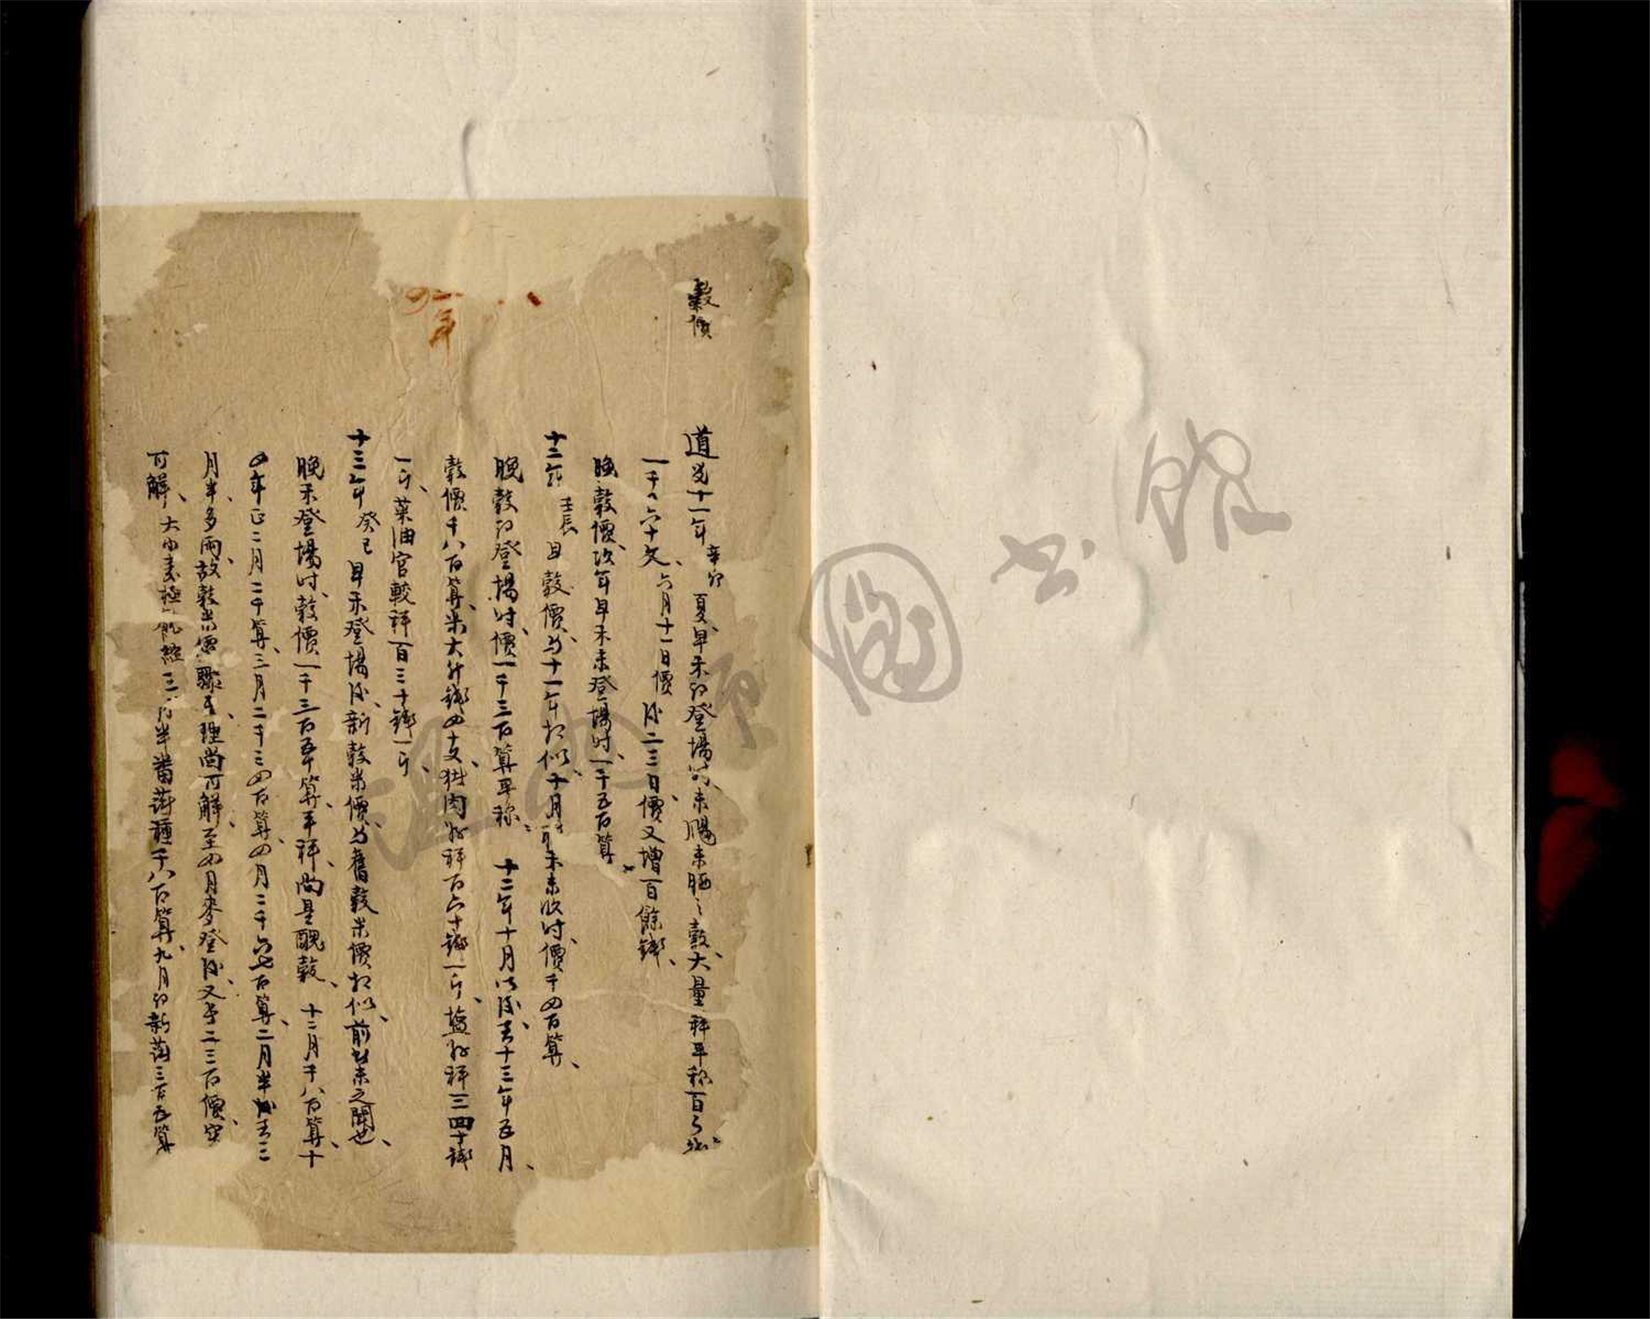 穀價
道光十一年辛卯夏、早禾初登場時、未颺未晒之穀、大量秤平称百斤
一千八六十文、六月十一日價、後二三日、價又增百餘錢、
晚穀價、次年早禾未登場时、一千五百算
十二年壬辰早穀價、与十一年相似、十月晚禾未收时、價千四百算、
晚穀初登場时、價一千三百算平称、十二年十月以後、去十三年五月、
穀價千八百算、米大升錢四十文、猪肉秤百六十錢一斤、鹽秤三四十錢
一斤、菜油官較秤一百三十錢一斤、
十三年癸巳早禾登場後、新穀米價、与舊穀米價相似、前此未之聞也、
晚禾登場时、穀價一千三百五十算、平秤、尚是醜穀、十二月千八百算、十
四年正二月二千算、三月二千三四百算、四月二千六七百算、二月半後去三
月半、多雨、故穀米價驟長、理尚可解、至四月麥登後、又長二三百價、實
可解、大小麦三百半番薯種千八百算、九月初新薯三百五算